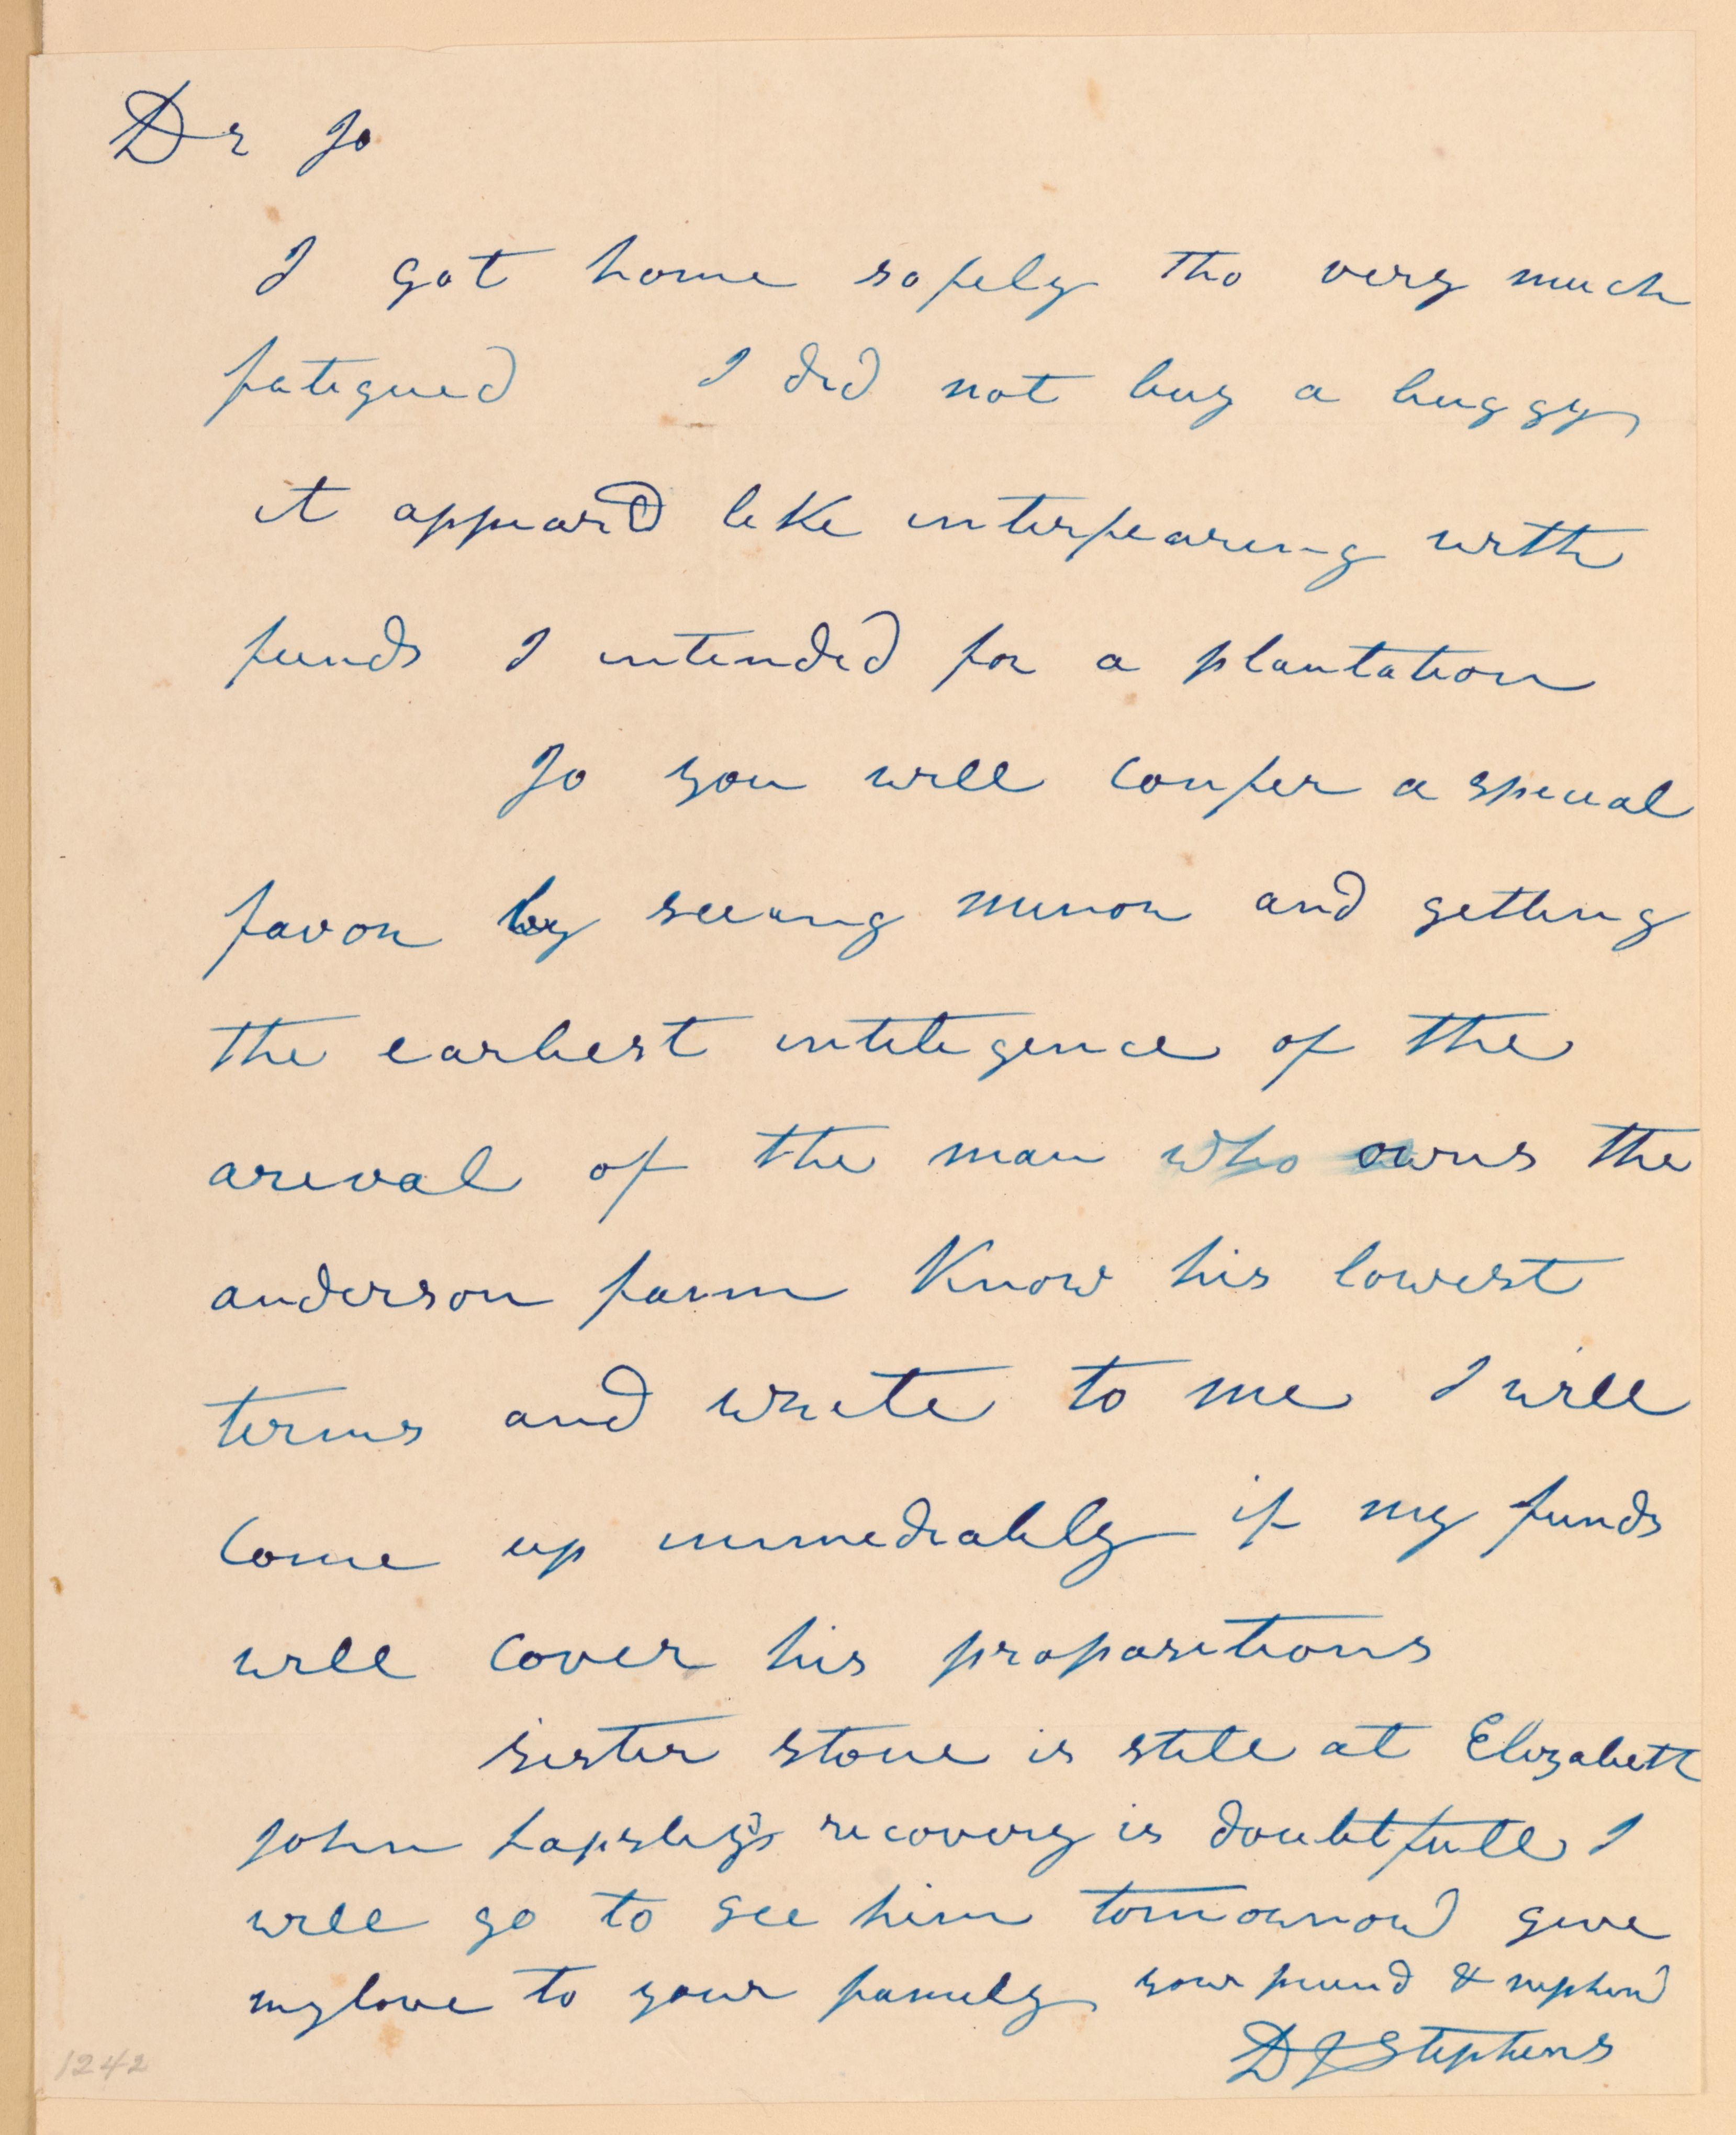 Dr Jo
I got home safely tho very much
fatigued I did not buy a buggy
it appeard like interfearing with
funds I intended for a plantation
Jo you will confer a special
favor by seeing minor and getting
the earliest inteligence of the
arival of the man who owns the
anderson farm Know his lowest
terms and write to me I will
come up immediately if my funds
will cover his propositions
sister stone is still at Elizabeth
John Lapsley's recovery is doubtfull I
will go to see him tomorrow give
my love to your family your friend & nephew
D J Stephens
1242